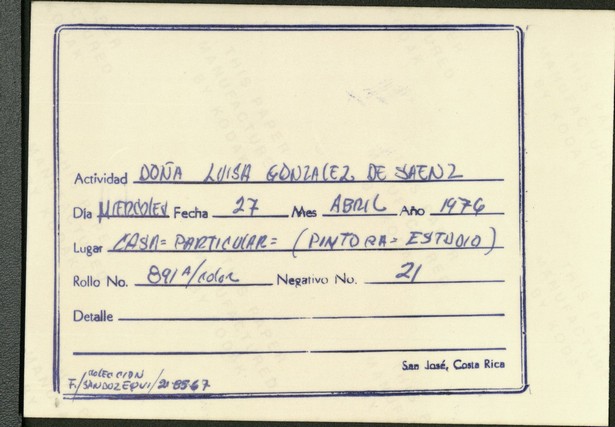 Actividad DOÑA LUISA GONZALEZ DE SAENZ
Día MIERCOLES Fecha 27 Mes ABRIL Año 1976
Lugar CASA= PARTICULAR= (PINTORA= ESTUDIO)
Rollo No. 891 A/color Negativo No. 21
Detalle
San José, Costa Rica
COLECCION
F/SANDOZEQUI/20-8567